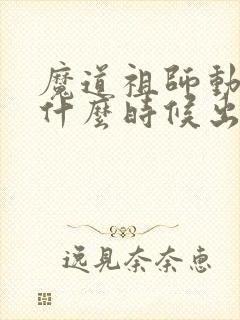 魔道祖師動
什麼時候出
逸見奈奈恵